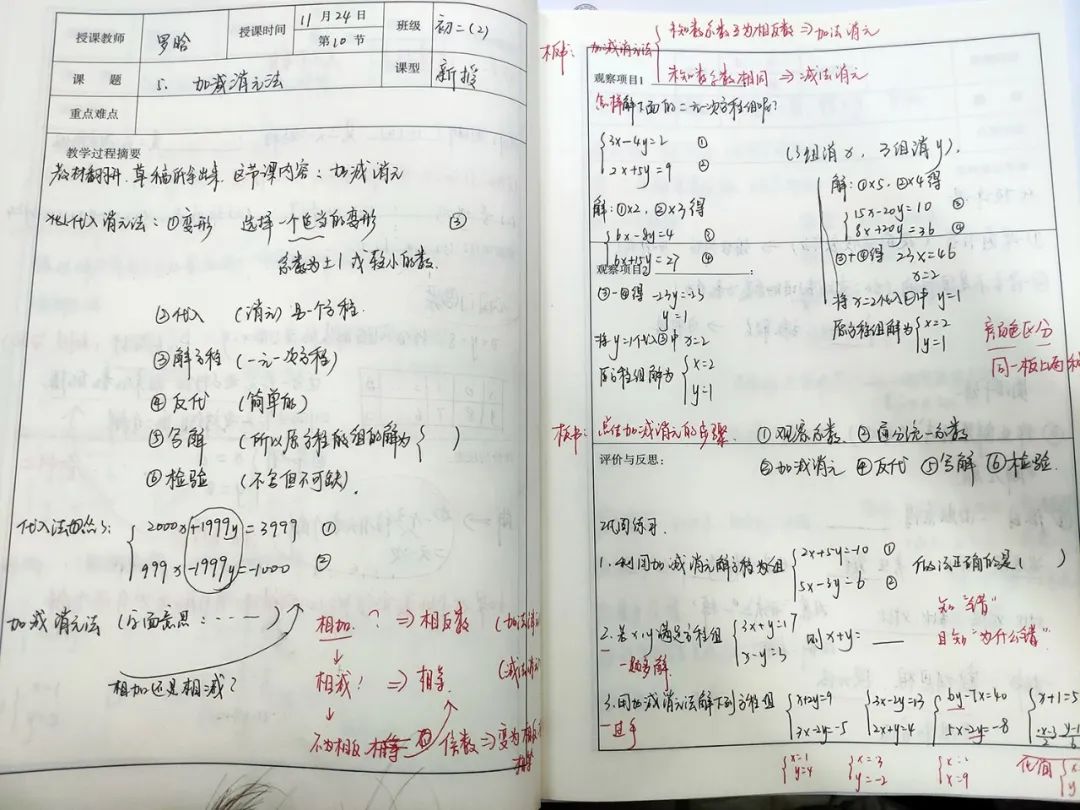 授课教师 罗晗 授课时间 11月24日 第10节 班级 初二(2)
课题 5. 加减消元法 课型 新授
重点难点
教学过程摘要
教材翻开.草稿纸拿出来.这节课内容:加减消元
代入消元法:①变形 选择一个适当的变形 ③
系数为±1或较小的数.
②代入 (消元) 另一个方程.
③解方程 (一元一次方程)
④反代 (简单的)
⑤写解 (所以原方程的组的解为{ )
⑥检验 (不写但不可缺).
代入法
{2000x+1999y=3999 ①
999x-1999y=-1000 ②
加减消元法 (字面意思:……)
相加还是相减?
相加.? ⇒ 相反数
相减! ⇒ 相等.
倍数⇒变为
板书: 加减消元法{未知数系数互为相反数⇒加法消元
未知数系数相同 ⇒减法消元
观察项目1:
怎样解下面的二元一次方程组呢?
{3x-4y=2 ①
2x+5y=9 ②
(3组消x, 3组消y).
解:①×2, ②×3得
{6x-8y=4 ③
6x+15y=27 ④
观察项目2 :
③-④得 -23y=-23
y=1
将y=1代入①中 x=2
原方程组解为{x=2
y=1
解:①×5, ②×4得
{15x-20y=10 ③
8x+20y=36 ④
③+④得 23x=46
x=2
将x=2代入①中 y=1
原方程组解为{x=2
y=1
亮白色区分
同一板上两种
板书: 总结加减消元的步骤. ①观察系数. ②区分统一系数
评价与反思: ③加减消元 ④反代 ⑤写解 ⑥检验.
巩固练习
1.利用加减消元解方程组{2x+5y=-10 ①
5x-3y=6 ② 做法正确的是( )
知"错"
且知"为什么错".
2.若x,y满足方程组{3x+y=17
x-y=3 则x+y=
一题多解.
3.用加减消元法解下列方程组
{x+2y=9
3x-2y=-5
{3x-2y=13
2x+y=4
{6y-7x=40
5x-2y=-8
{x+1=5
一过手
{x=1
y=4
{x=3
y=-2
{x=
x=9
化简